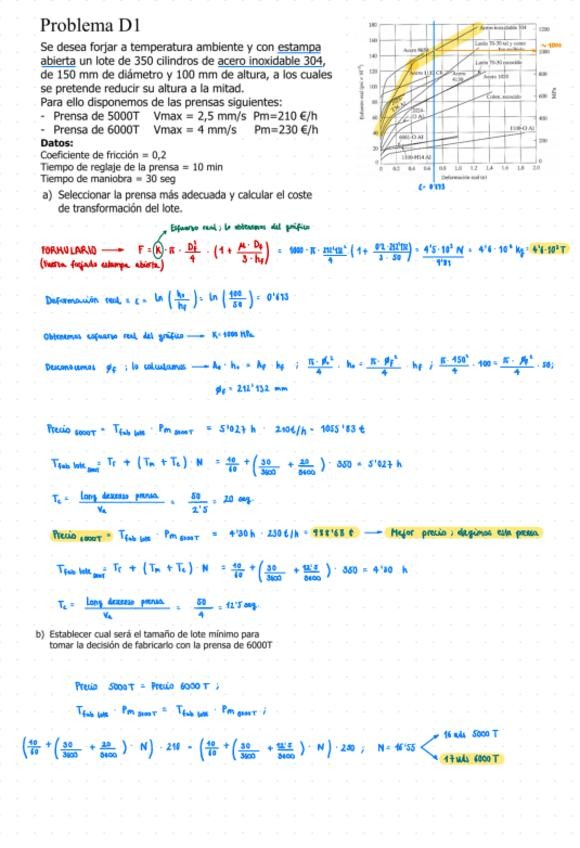 Problema D1
Se desea forjar a temperatura ambiente y con estampa
abierta un lote de 350 cilindros de acero inoxidable 304,
de 150 mm de diámetro y 100 mm de altura, a los cuales
se pretende reducir su altura a la mitad.
Para ello disponemos de las prensas siguientes:
- Prensa de 5000T Vmax = 2,5 mm/s Pm=210 €/h
- Prensa de 6000T Vmax = 4 mm/s Pm=230 €/h
Datos:
Coeficiente de fricción = 0,2
Tiempo de reglaje de la prensa = 10 min
Tiempo de maniobra = 30 seg
a) Seleccionar la prensa más adecuada y calcular el coste
de transformación del lote.
Acero inoxidable 304
1100-H14 Al
Deformación real (ε)
MPa
~ 1000
ε = 0'693
Esfuerzo real; lo obtenemos del gráfico
FORMULARIO → F = K · π · Df²/4 · (1 + μ · Df / 3 · hf) = 1000 · π · 212'132²/4 (1 + 0'2 · 212'132 / 3 · 50) = 4'5 · 10⁷ N / 9'81 = 4'6 · 10⁶ kg = 4'6 · 10³ T
(Fuerza forjado estampa abierta)
Deformación real = ε = ln (h₀/hf) = ln (100/50) = 0'693
Obtenemos esfuerzo real del gráfico → K = 1000 MPa
Desconocemos ϕf; lo calculamos → A₀ · h₀ = Af · hf ; π · ϕ₀²/4 · h₀ = π · ϕf²/4 · hf ; π · 150²/4 · 100 = π · ϕf²/4 · 50;
ϕf = 212'132 mm
Precio 5000T = T fab lote · Pm 5000T = 5'027 h · 210€/h = 1055'83 €
T fab lote 5000T = Tr + (Tm + Tc) · N = 10/60 + (30/3600 + 20/3600) · 350 = 5'027 h
Tc = Long descenso prensa / Va = 50/2'5 = 20 seg.
Precio 6000T = T fab lote · Pm 6000T = 4'30 h · 230 €/h = 988'68 € → Mejor precio; elegimos esta prensa
T fab lote = Tr + (Tm + Tc) · N = 10/60 + (30/3600 + 12'5/3600) · 350 = 4'30 h
Tc = Long descenso prensa / Va = 50/4 = 12'5 seg.
b) Establecer cual será el tamaño de lote mínimo para
tomar la decisión de fabricarlo con la prensa de 6000T
Precio 5000T = Precio 6000T ;
T fab lote · Pm 5000T = T fab lote · Pm 6000T ;
(10/60 + (30/3600 + 20/3600) · N) · 210 = (10/60 + (30/3600 + 12'5/3600) · N) · 230 ; N = 16'55
16 uds 5000T
17 uds 6000T